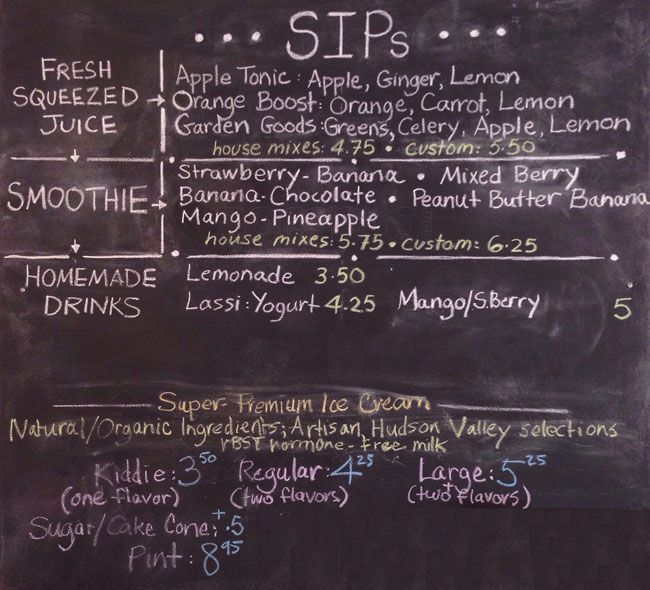 ... SIPs ...
FRESH SQUEEZED JUICE
Apple Tonic: Apple, Ginger, Lemon
Orange Boost: Orange, Carrot, Lemon
Garden Goods: Greens, Celery, Apple, Lemon
house mixes: 4.75 • custom: 5.50
SMOOTHIE
Strawberry-Banana • Mixed Berry
Banana-Chocolate • Peanut Butter Banana
Mango-Pineapple
house mixes: 5.75 • custom: 6.25
HOMEMADE DRINKS
Lemonade 3.50
Lassi: Yogurt 4.25 Mango/S.Berry 5
Super-Premium Ice Cream
Natural/Organic Ingredients; Artisan, Hudson Valley selections
rBST hormone-free milk
Kiddie: 3.50 Regular: 4.25 Large: 5.25
(one flavor) (two flavors) (two+ flavors)
Sugar/Cake Cone: +.5
Pint: 8.95